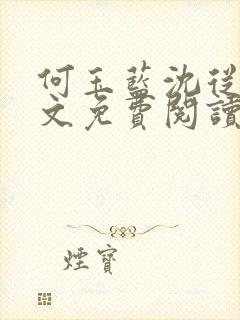 何玉藍沈從
文免費閱讀
煙寶